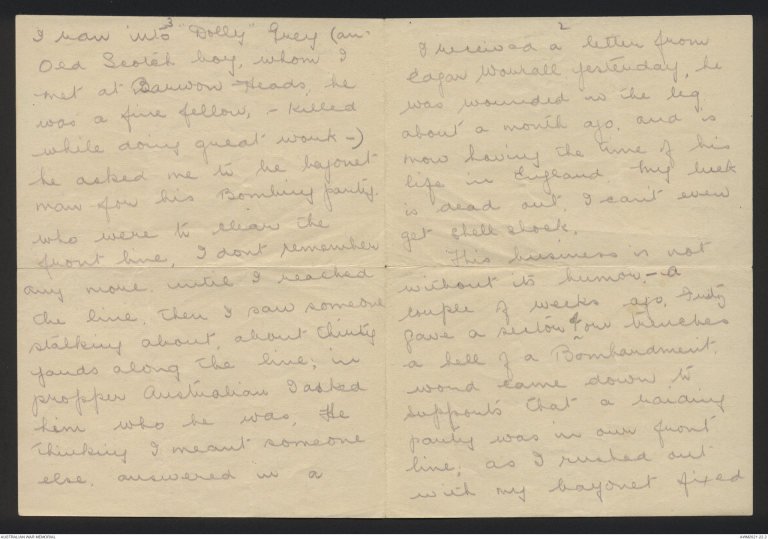 3
I ran into "Dolly" Grey (an
Old Scotch boy, whom I
met at Barwon Heads, he
was a fine fellow, - killed
while doing great work -)
he asked me to be bayonet
man for his Bombing party
who were to clear the
front line, I dont remember
any more until I reached
the line, then I saw someone
stalking about, about thirty
yards along the line; in
propper Australian I asked
him who he was, He
thinking I meant someone
else, answered in a
2
I received a letter from
Edgar Worrall yesterday, he
was wounded in the leg
about a month ago, and is
now having the time of his
life in England. My luck
is dead out, I cant even
get shell shock.
This business is not
without its humor, - a
couple of weeks ago, Fritz
gave a sector of our trenches
a hell of a Bombardment,
word came down to
supports that a raiding
party was in our front
line, as I rushed out
with my bayonet fixed
AUSTRALIAN WAR MEMORIAL